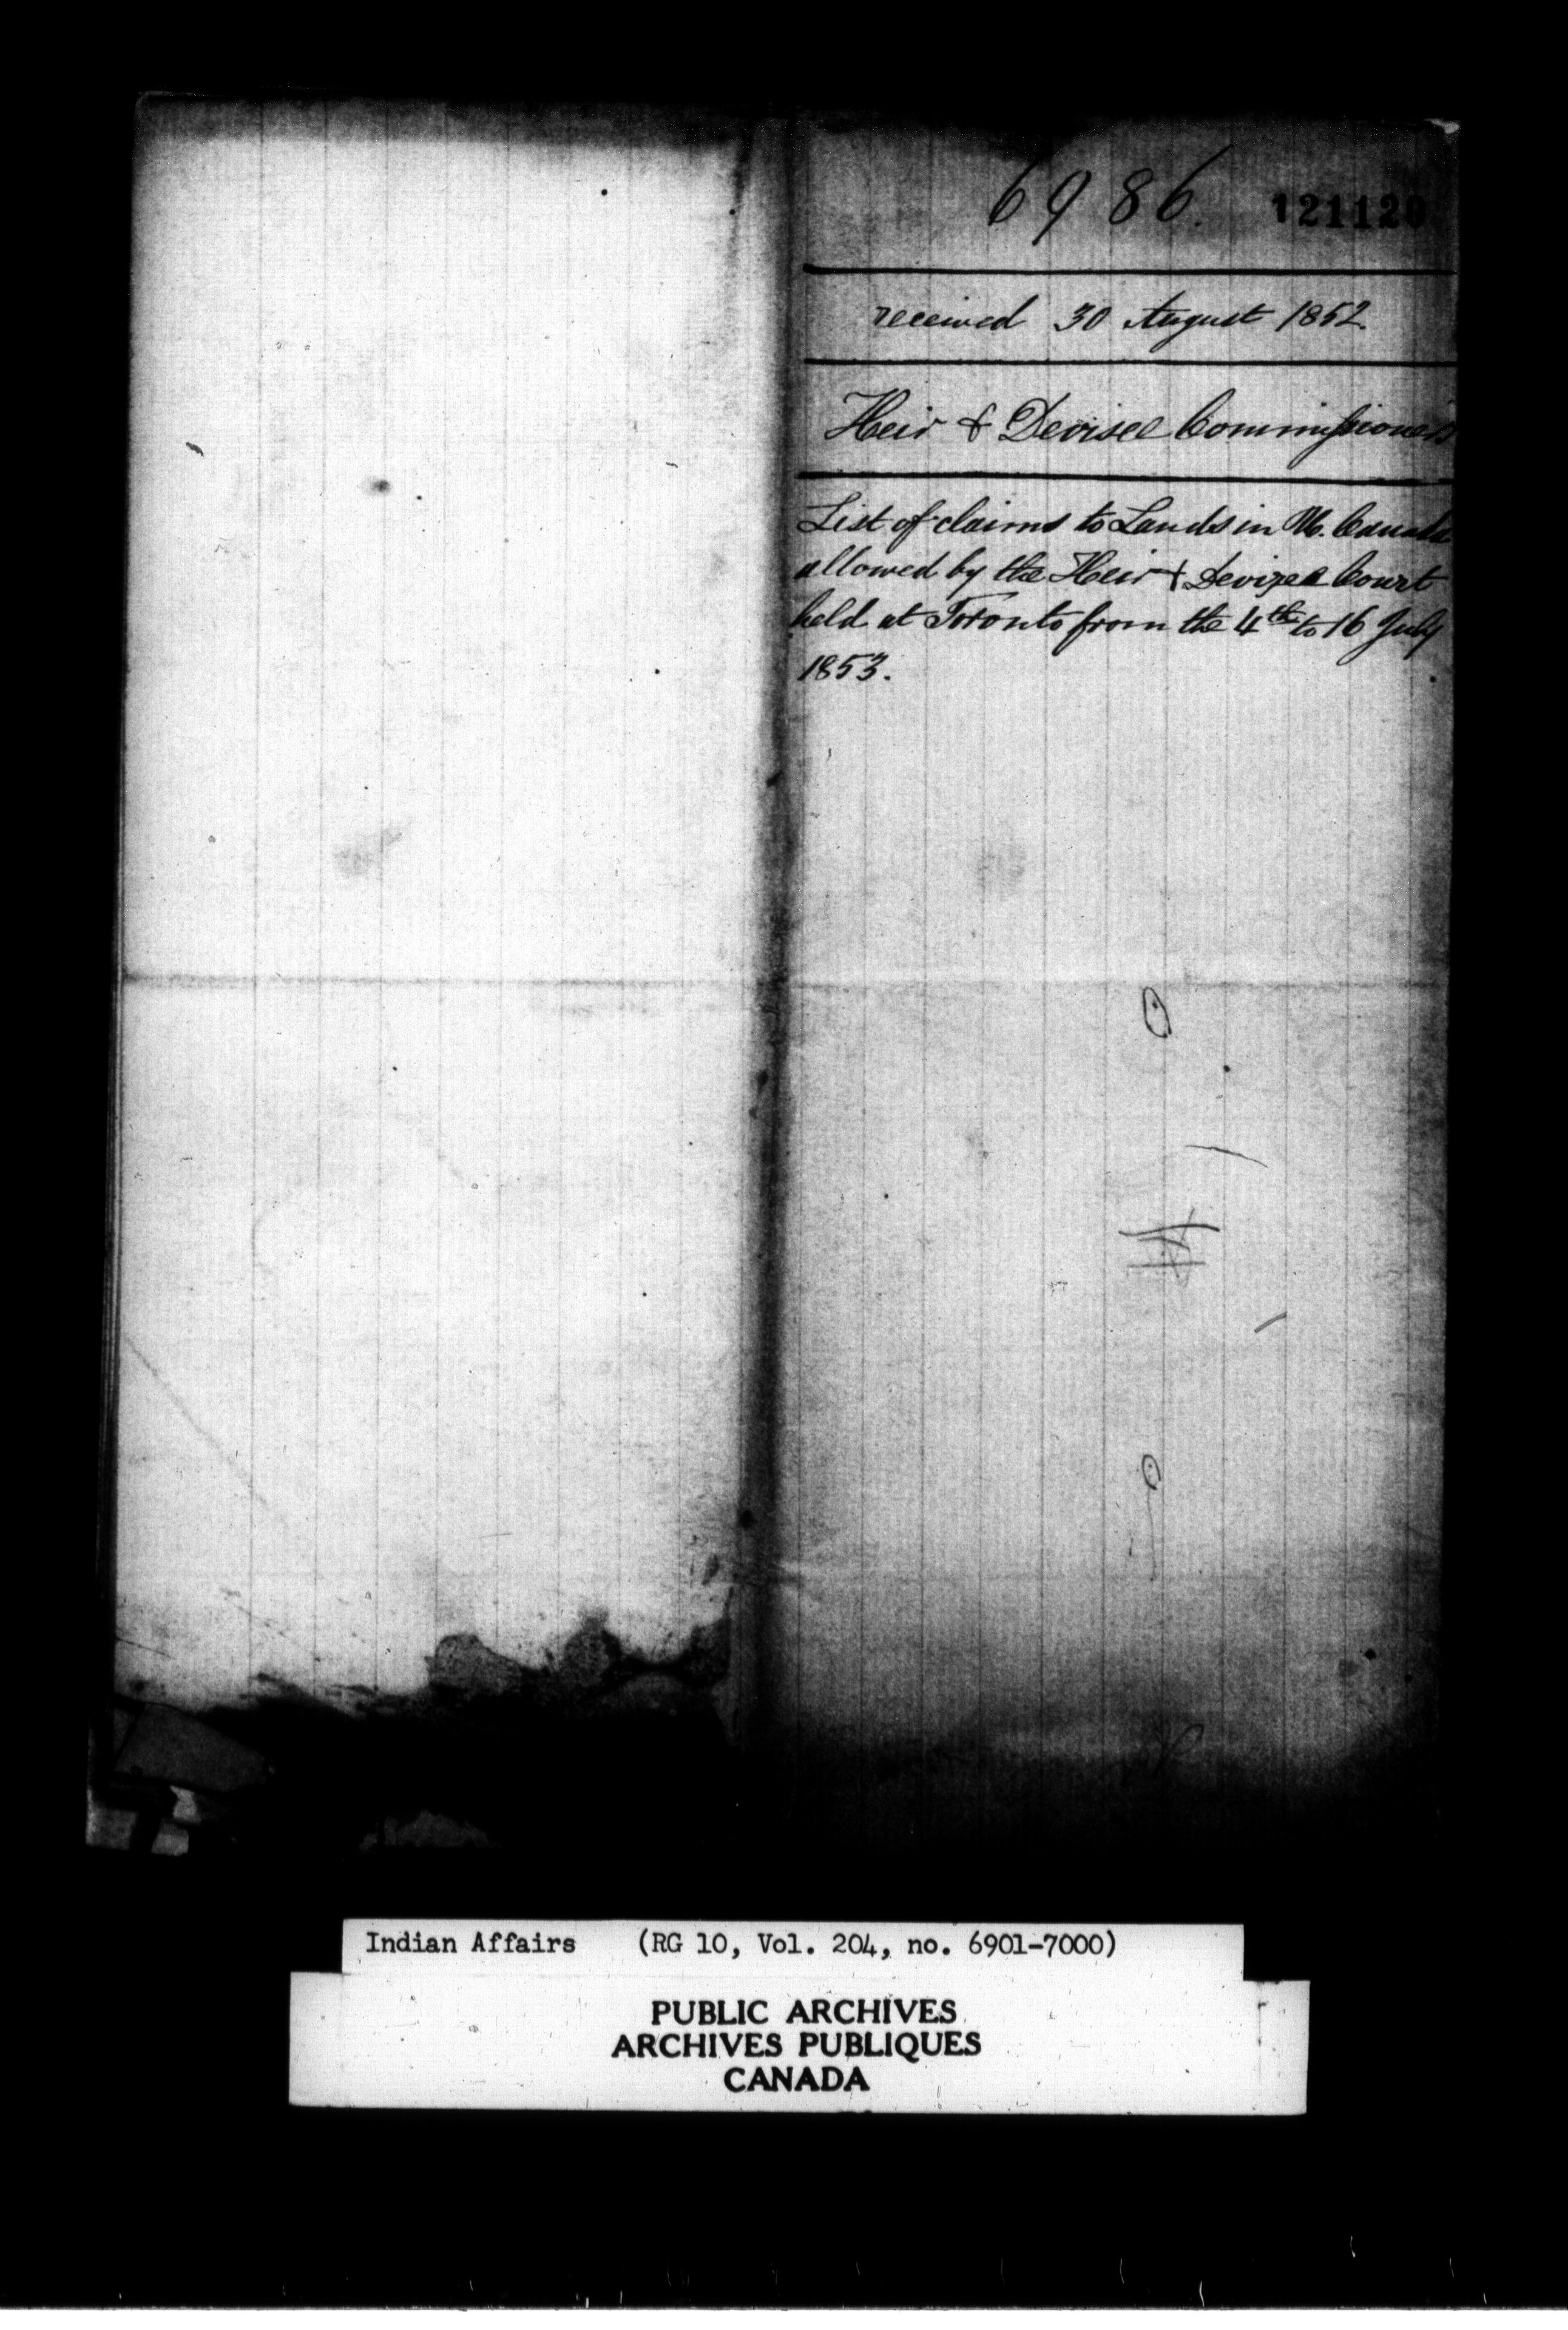 6986. 121120
received 30 August 1852.
Heir & Devisee Commissioners
List of claims to Lands in W. Canada
allowed by the Heir & Devisee Court
held at Toronto from the 4th to 16 July
1853.
Indian Affairs (RG 10, Vol. 204, no. 6901-7000)
PUBLIC ARCHIVES
ARCHIVES PUBLIQUES
CANADA